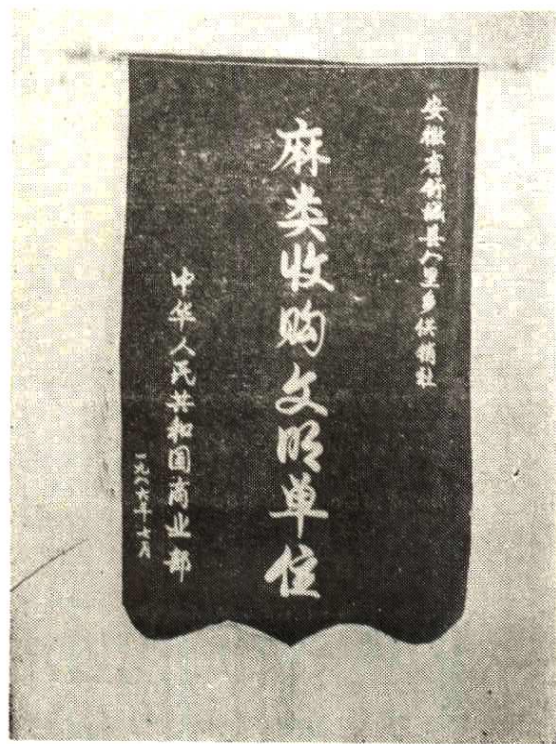 安徽省舒城县八里乡供销社
麻类收购文明单位
中华人民共和国商业部
一九八六年七月